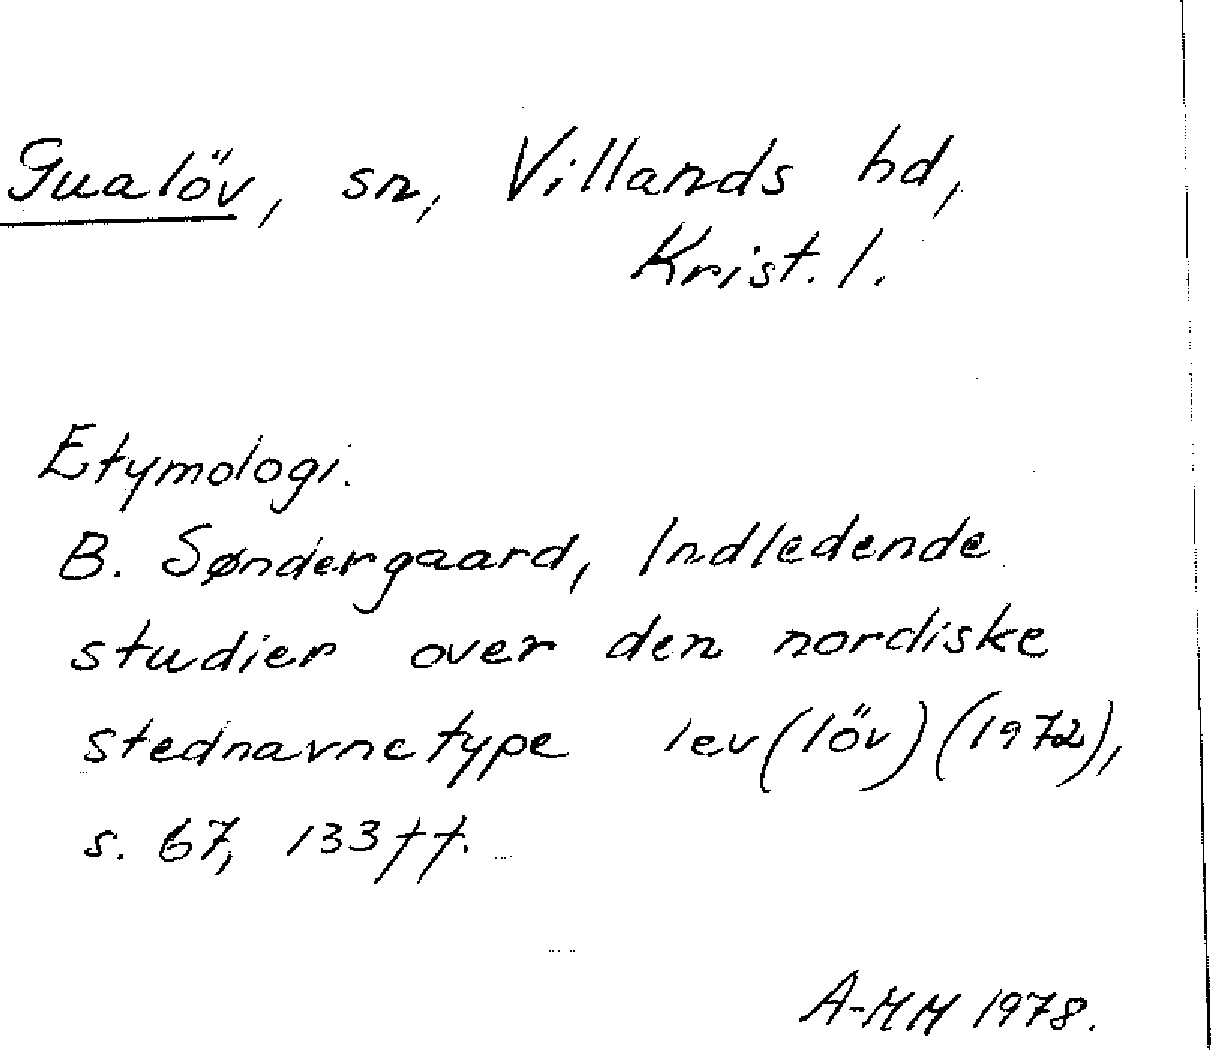 Gualöv, sn, Villands hd,
Krist. l.
Etymologi.
B. Søndergaard, Indledende
studier over den nordiske
stednavnetype lev(löv)(1972),
s. 67, 133ff.
A-MM 1978.